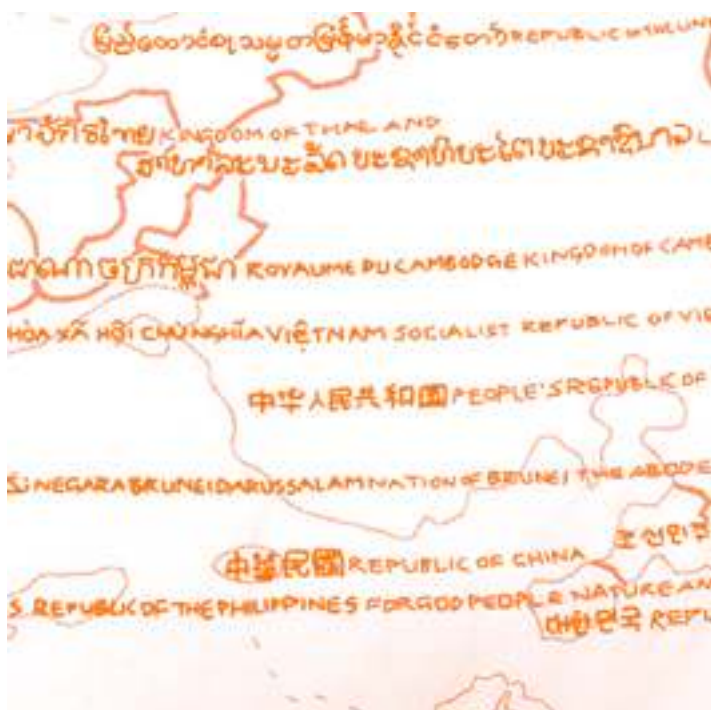 ပြည်ထောင်စုသမ္မတမြန်မာနိုင်ငံတော် REPUBLIC OF THE UN
KINGDOM OF THAILAND
ສາທາລະນະລັດ ປະຊາທິປະໄຕ ປະຊາຊົນລາວ
ROYAUME DU CAMBODGE KINGDOM OF CAMB
HÒA XÃ HỘI CHỦ NGHĨA VIỆT NAM SOCIALIST REPUBLIC OF VIE
中华人民共和國 PEOPLE'S REPUBLIC OF
NEGARA BRUNEI DARUSSALAM NATION OF BRUNEI THE ABODE
조선민주
中華民國 REPUBLIC OF CHINA
S REPUBLIC OF THE PHILIPPINES FOR GOD PEOPLE NATURE AN
대한민국 REPU